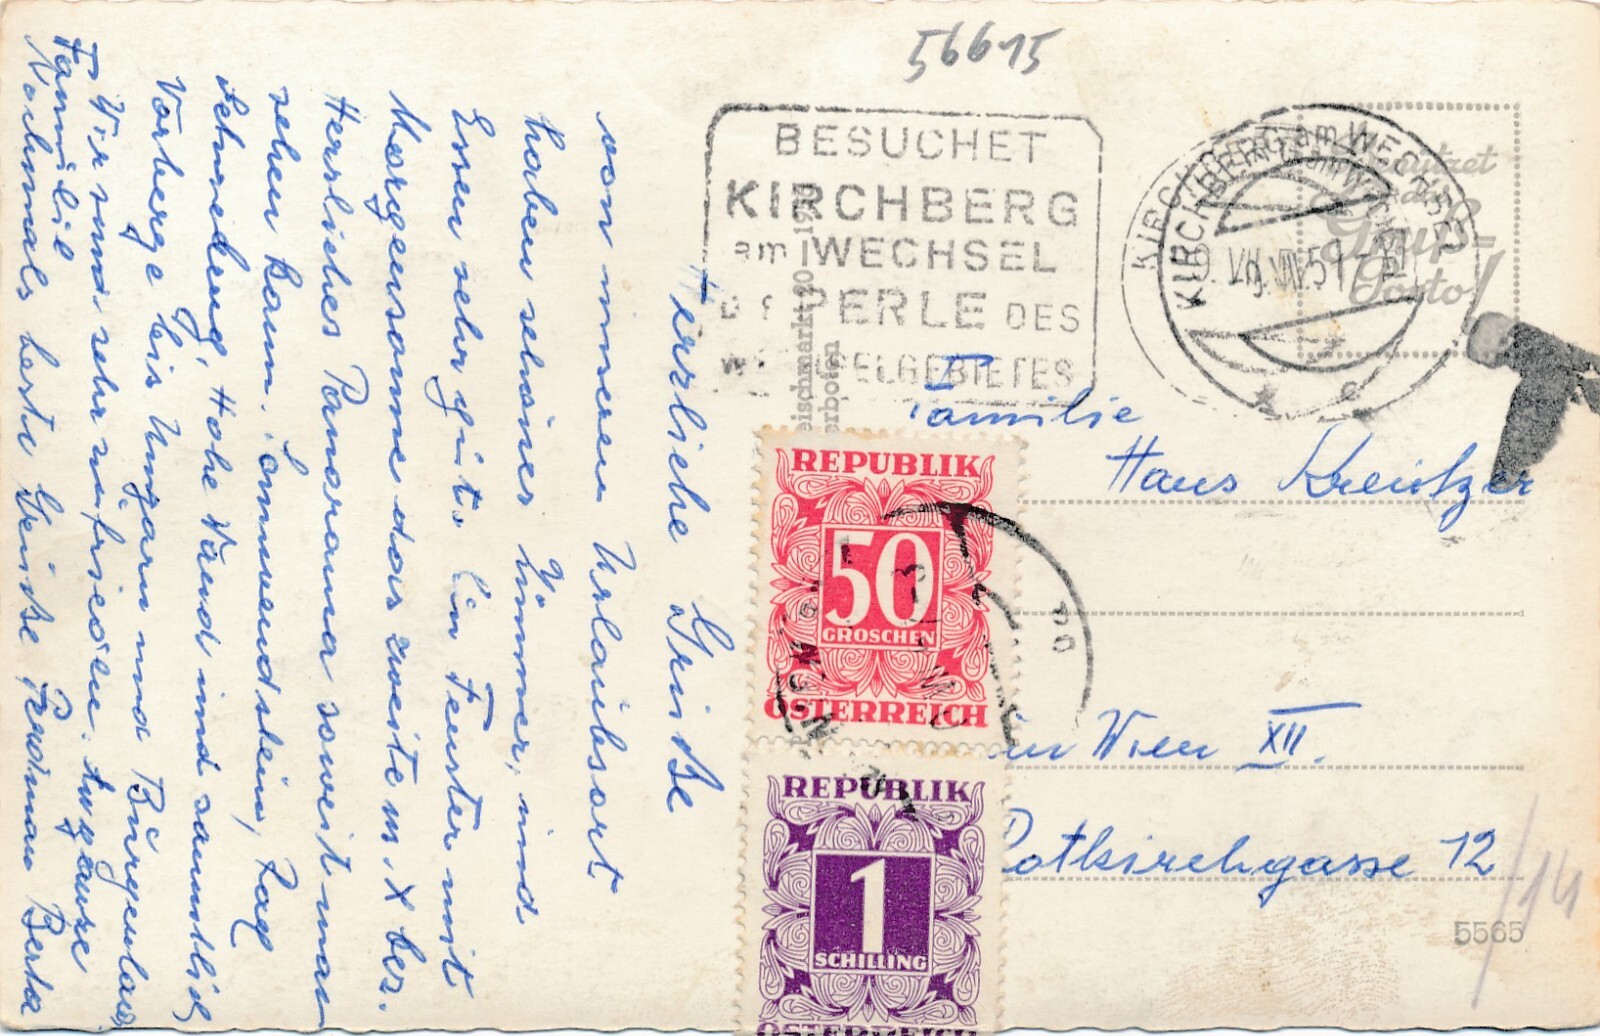 56615
BESUCHET
KIRCHBERG
am WECHSEL
PERLE DES
KIRCHBERG am WECHSEL
Benützet
die
Gruß-
Porto!
Herzliche Grüße
von unseren Urlaubsort
haben schönes Zimmer, und
Essen sehr gut. Ein Fenster mit
Morgensonne das zweite m. X bez.
Herrliches Panorama soweit man
sehen kann. Sonnwendstein, Rax
Schneeberg, Hohe Wand und sammtlich
Vorberge bis Ungarn und Burgenland
Wir sind sehr zufrieden.
Familie
Nochmals beste Grüße Berta
Familie
Hans Kreutzer
in Wien XII.
Rotkirchgasse 12
/14
5565
REPUBLIK
50
GROSCHEN
ÖSTERREICH
REPUBLIK
1
SCHILLING
ÖSTERREICH